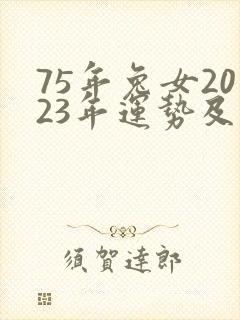 75年兔女20
23年運勢及
須賀達郎